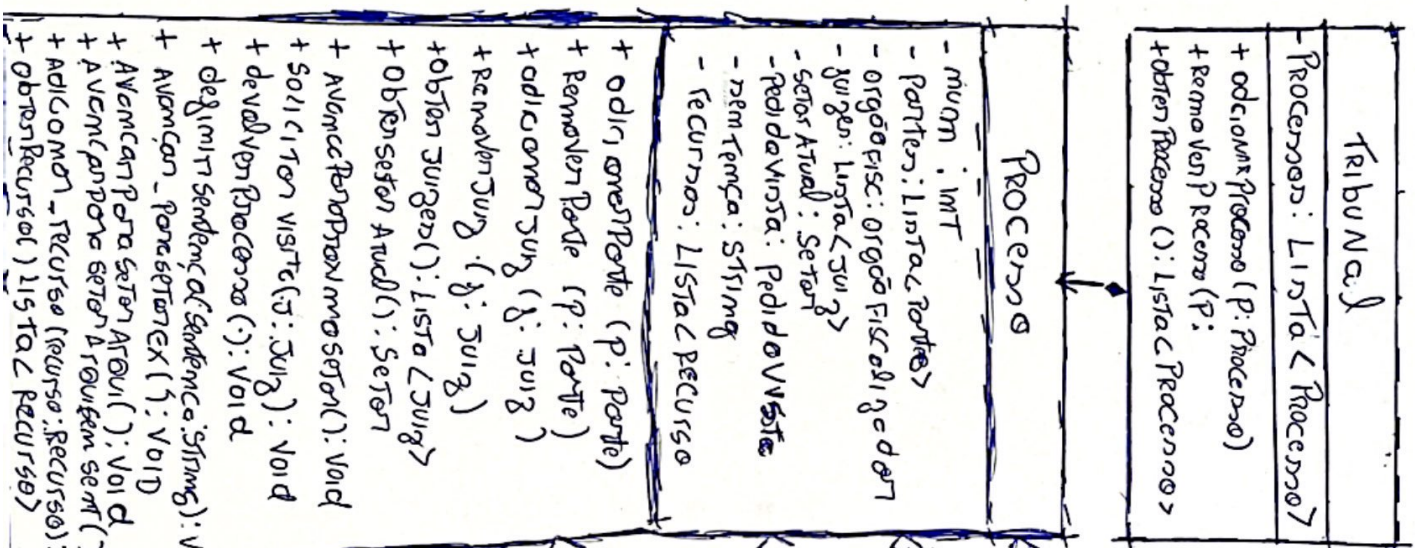 TRIBUNal
- Processos: Lista < Processo>
+ adicionar Processo (p: Processo)
+ Remover Processo (P:
+ obter Processo (): Lista < Processo>
PROCESSO
- num : INT
- partes: Lista < Partes>
- orgãoFisc: orgãoFiscalizador
- juizes: Lista < Juiz>
- setorATual : Setor
- PedidoVista: PedidoVista
- sentença: STring
- recursos: LISTa < RECUrso
+ adicionarParte (p: Parte)
+ RemoverParte (p: Parte)
+ adicionarJuiz (j: JUIz)
+ RemoverJuiz (j: JUIz)
+ obterJuizes(): Lista < Juiz>
+ ObTersetor Atual(): SeTor
+ AvançaParaProximoseTor(): Void
+ SoliciTar visita(J: Juiz): Void
+ devolverProcesso(.): Void
+ definirsentença(sentença:STring): V
+ AVançar_paraseTorex(): VOID
+ AVançarParaSeTorArqui(): Void
+ AVançarpara seTorArquisem senT(
+ Adicionar_recurso(recurso:Recurso):
+ obTerRecurso() LISTa < Recurso>